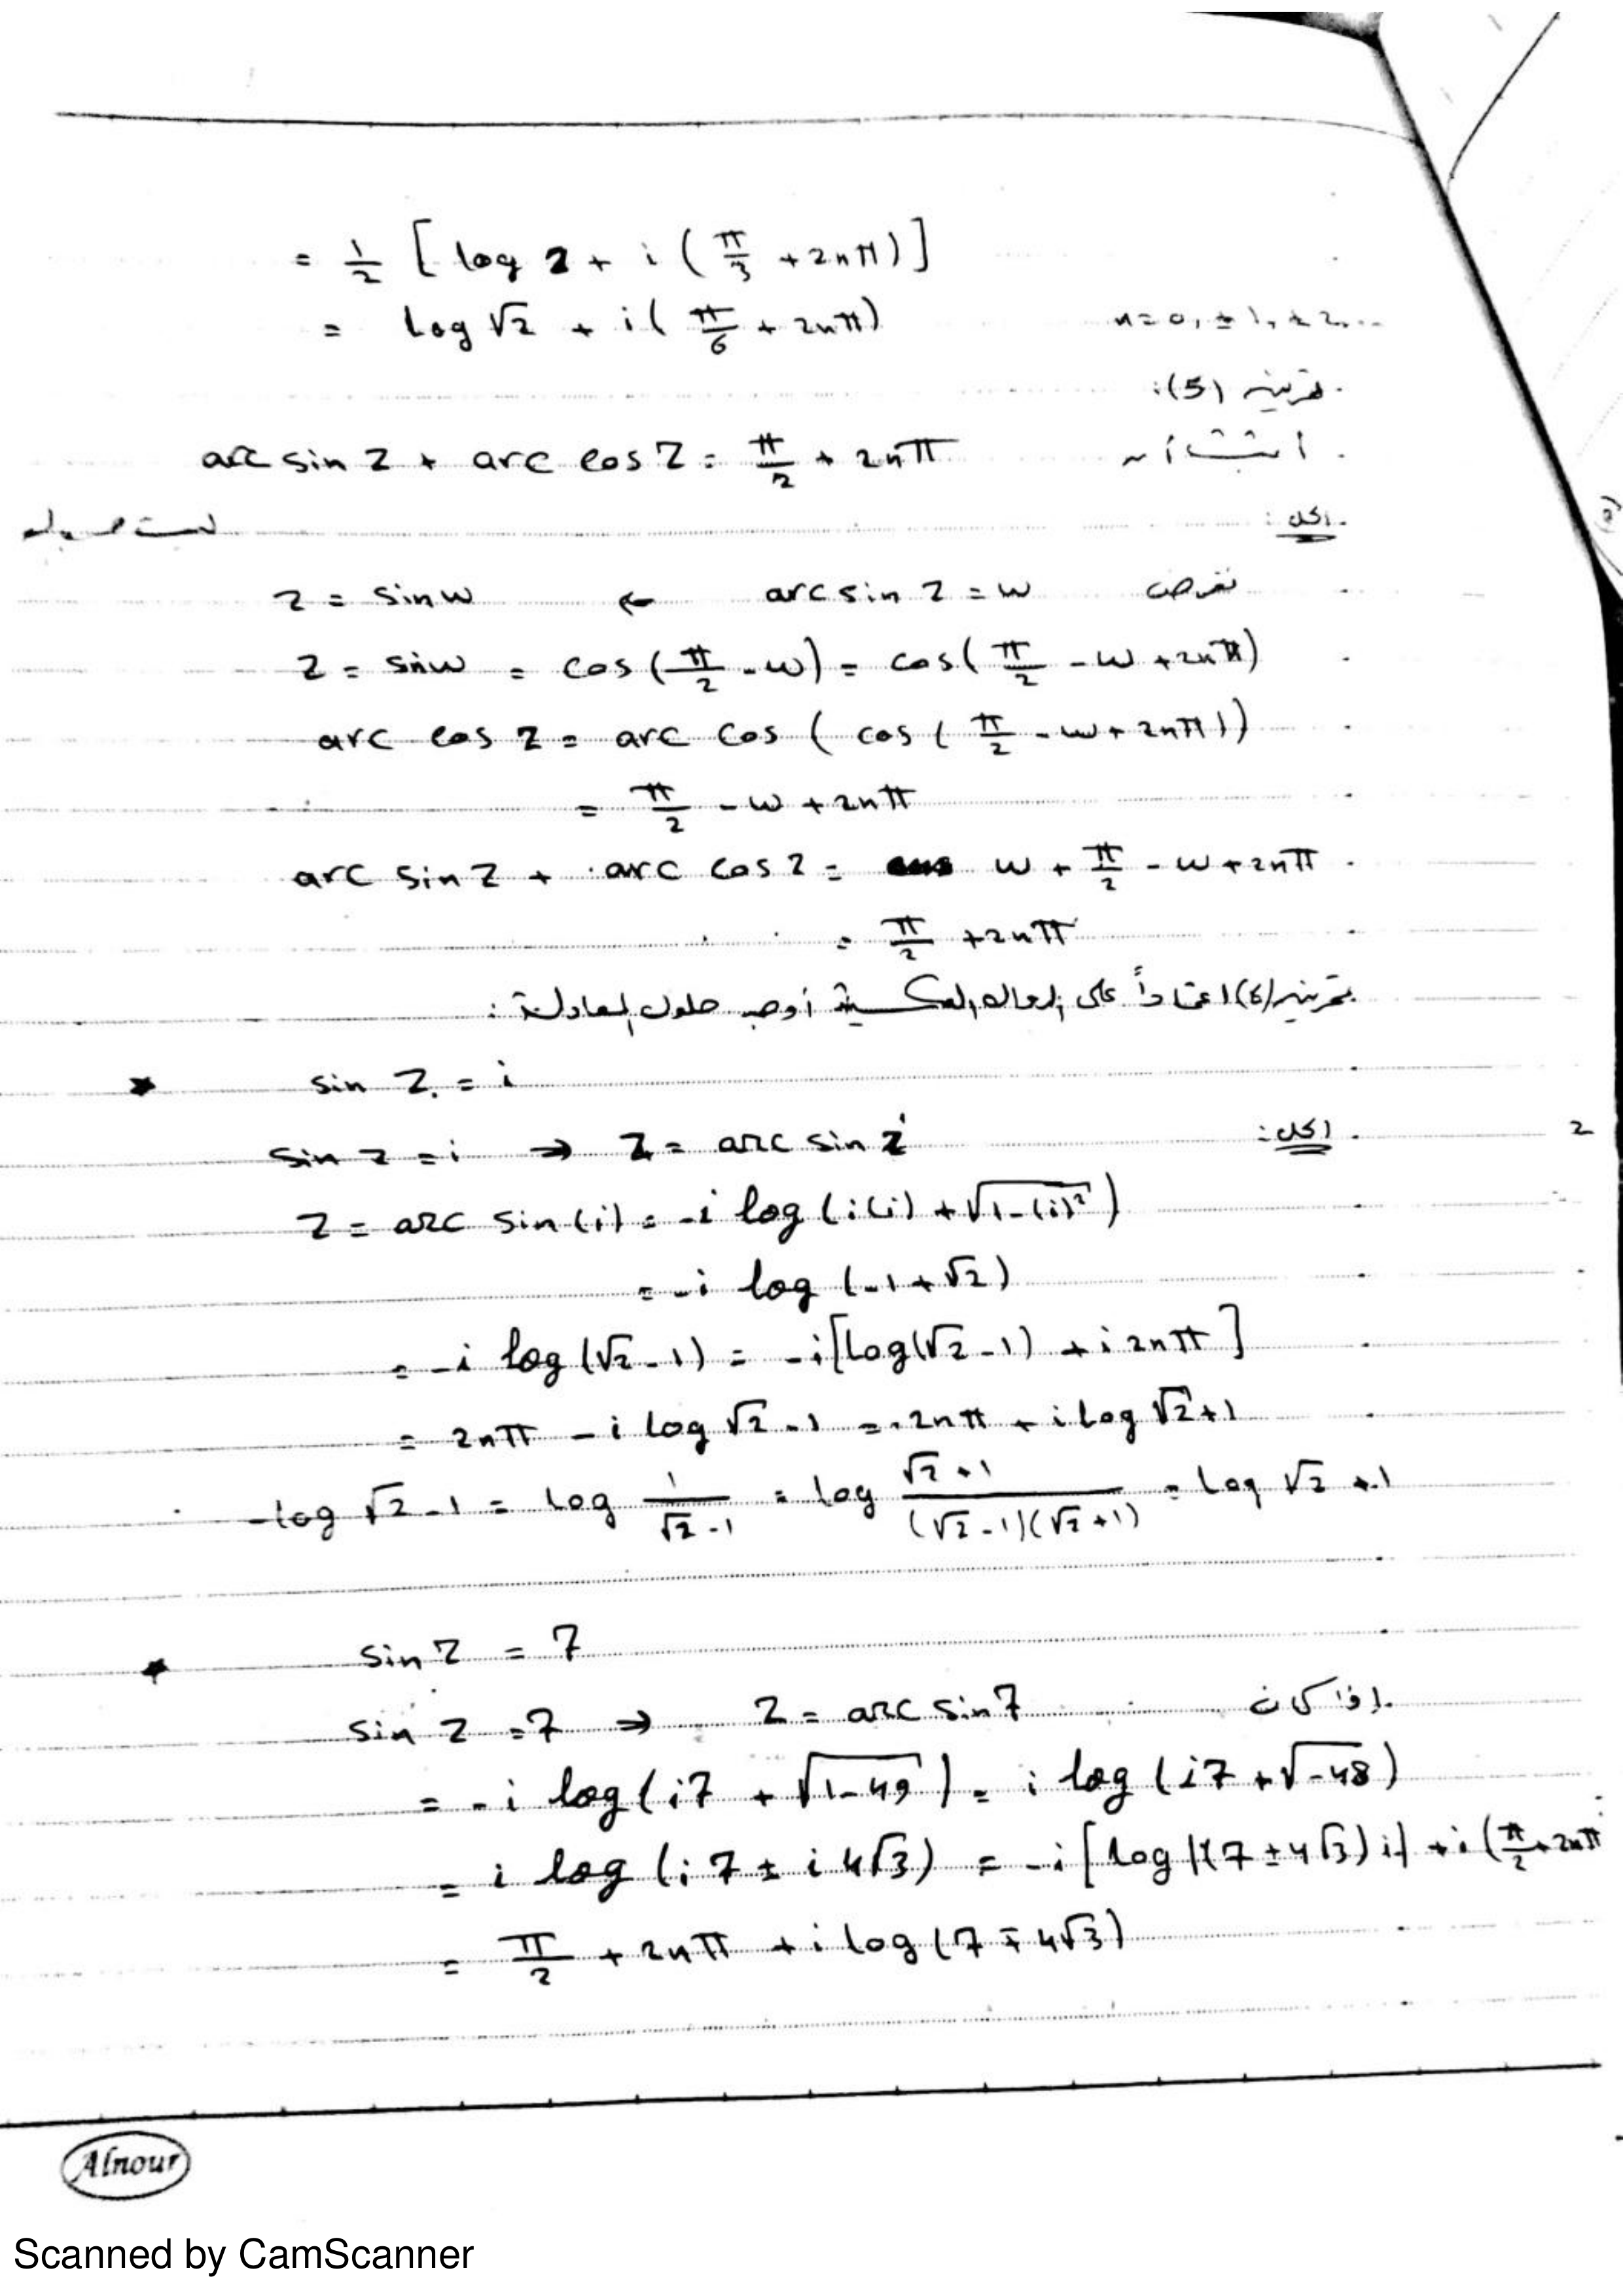 = 1/2 [ log 2 + i ( π/3 + 2nπ) ]
= Log √2 + i( π/6 + 2nπ) n = 0, ± 1, ± 2, ...
تمرين (5):
أثبت أن arc sin z + arc cos z = π/2 + 2nπ
الحل:
نفرض arc sin z = w ← z = sin w
z = sin w = cos ( π/2 - w) = cos ( π/2 - w + 2nπ)
arc cos z = arc cos ( cos ( π/2 - w + 2nπ))
= π/2 - w + 2nπ
arc sin z + arc cos z = w + π/2 - w + 2nπ
= π/2 + 2nπ
تمرين (6) اعتماداً على الدالة العكسية أوجد حلول المعادلة:
* sin z = i
الحل: sin z = i ⇒ z = arc sin i
z = arc sin (i) = -i log (i(i) + √(1-(i)²))
= -i log (-1 + √2)
= -i log (√2 - 1) = -i[Log(√2 - 1) + i 2nπ ]
= 2nπ - i Log √2 - 1 = 2nπ + i Log √2 + 1
-log √2 - 1 = Log 1/(√2 - 1) = log (√2 + 1)/((√2 - 1)(√2 + 1)) = Log √2 + 1
* sin z = 7
إذا كان sin z = 7 ⇒ z = arc sin 7
= -i log (i7 + √(1-49)) = i log (i7 + √-48)
= i log (i7 ± i4√3) = -i [Log |(7 ± 4√3) i| + i ( π/2 + 2nπ
= π/2 + 2nπ + i Log (7 ∓ 4√3)
Alnour
Scanned by CamScanner